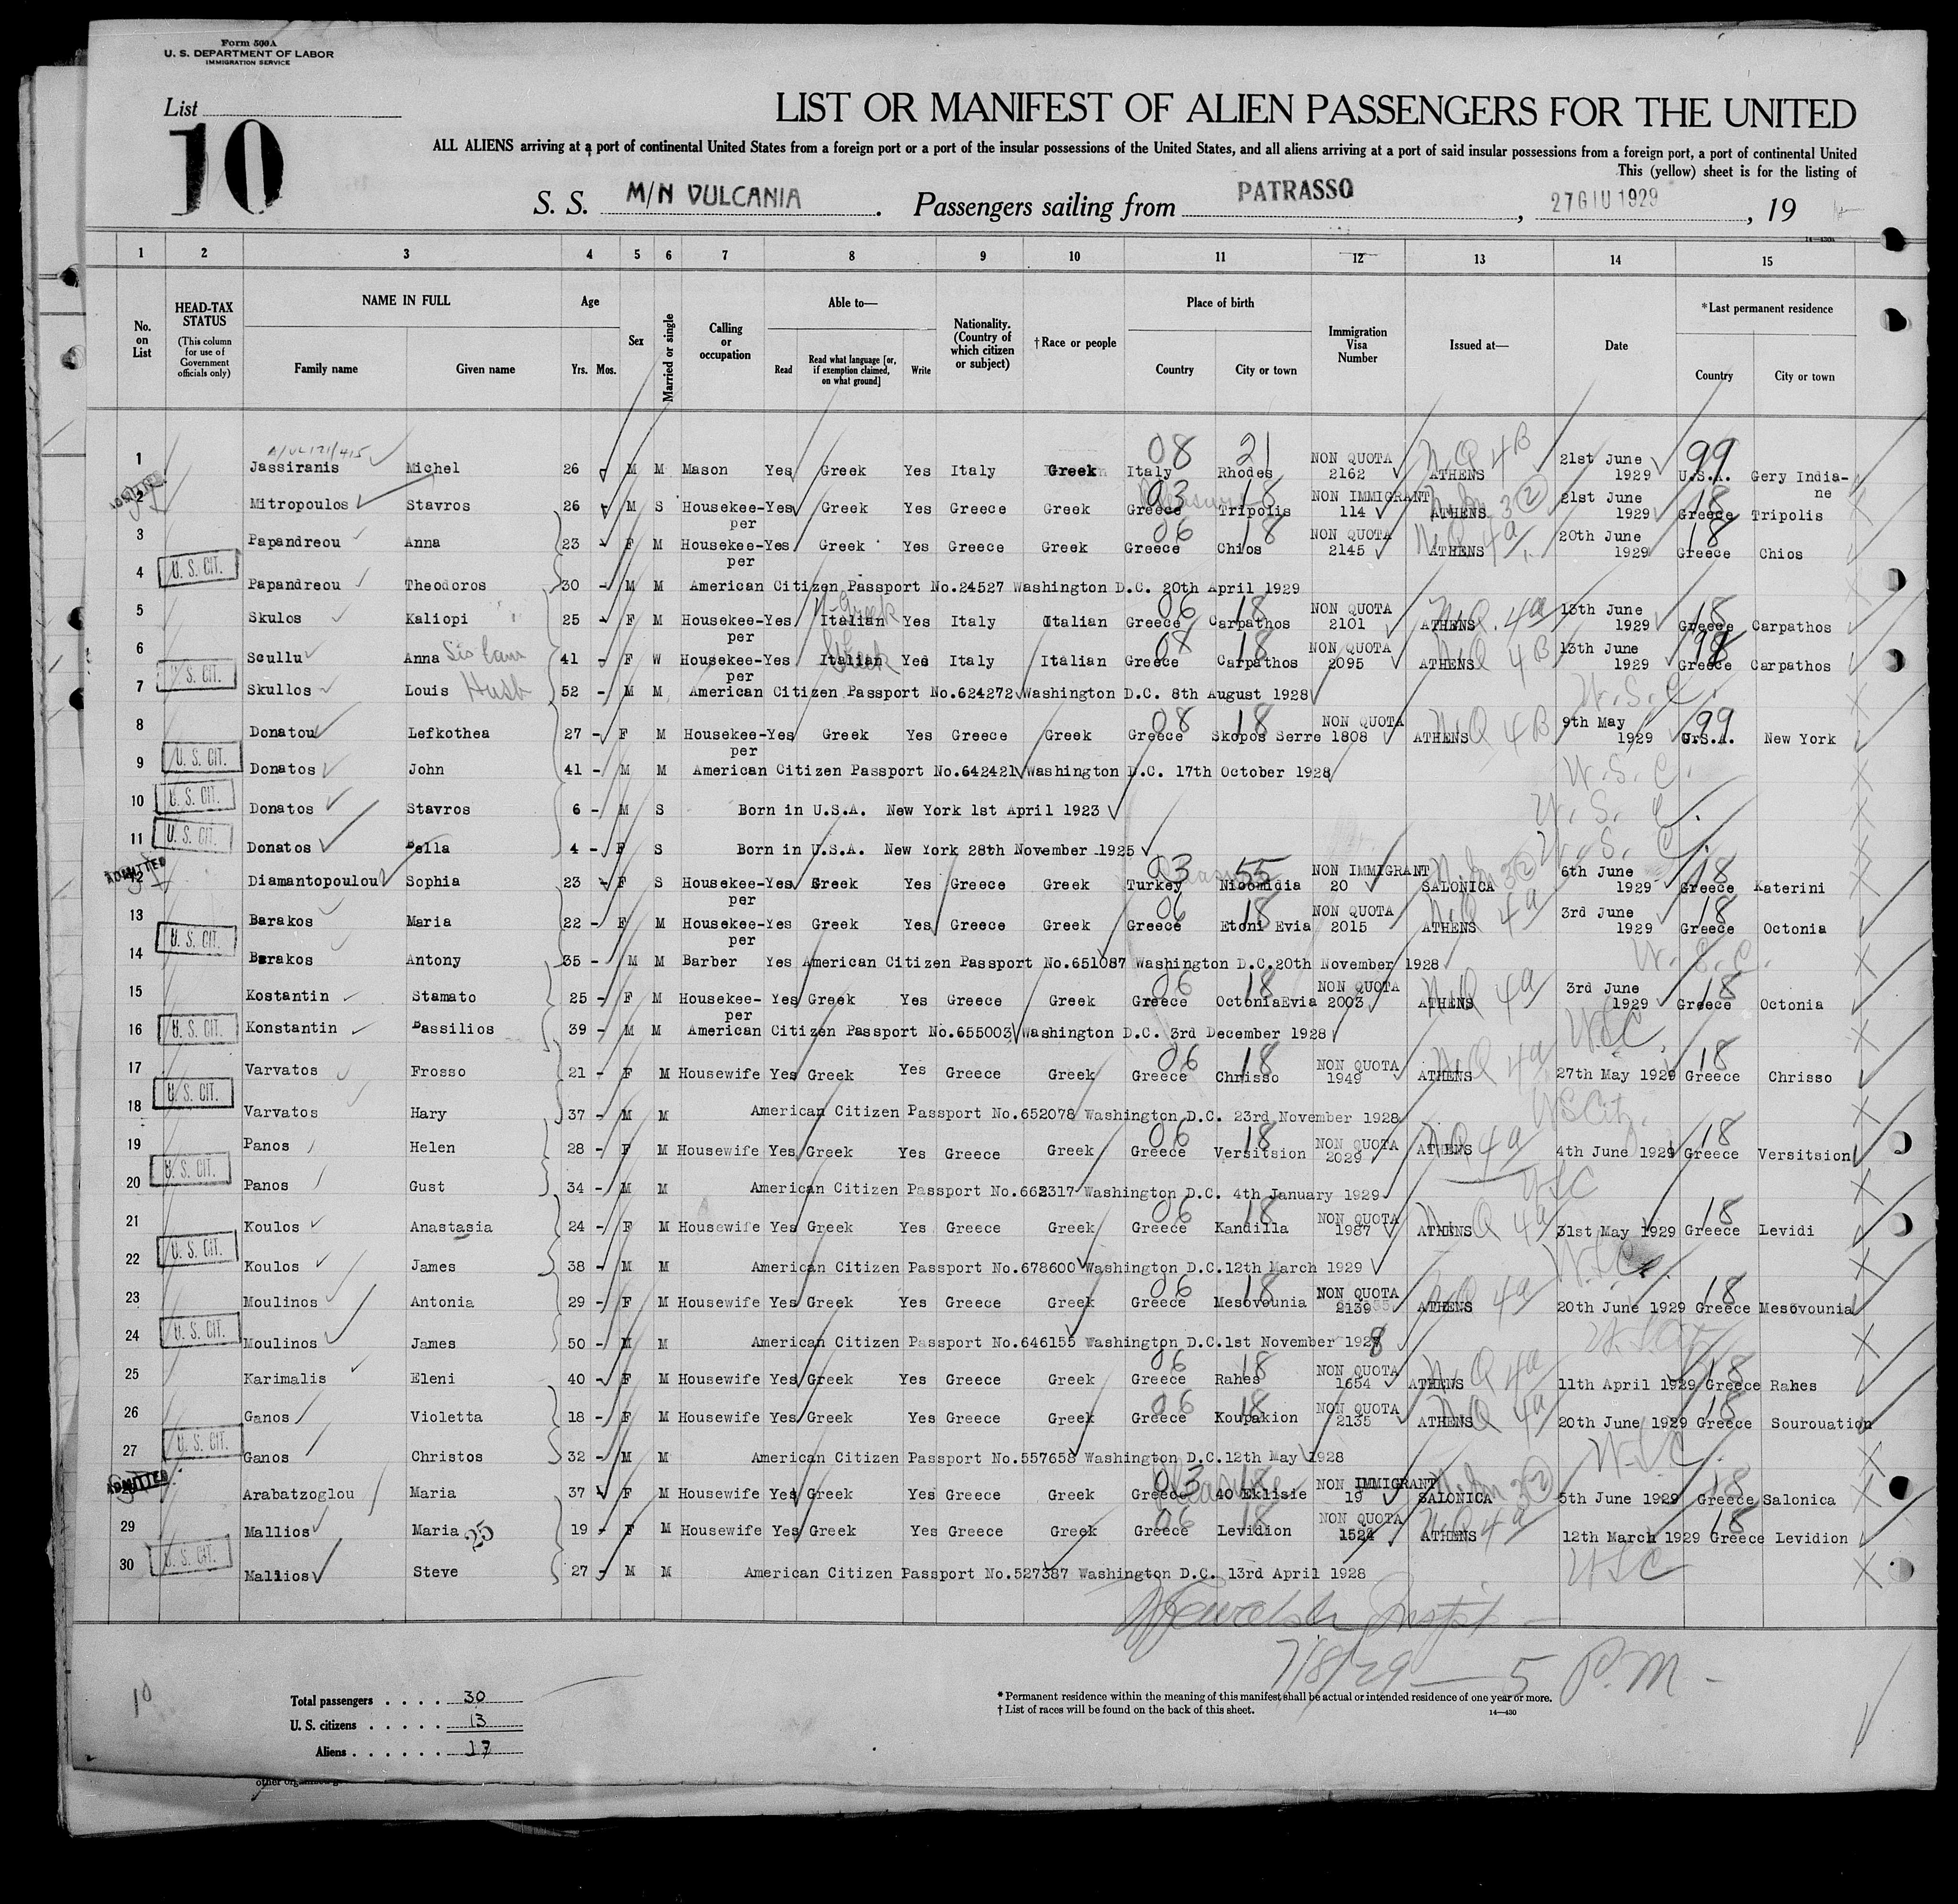 Form 500 A
U. S. DEPARTMENT OF LABOR
IMMIGRATION SERVICE
List
10
LIST OR MANIFEST OF ALIEN PASSENGERS FOR THE UNITED
ALL ALIENS arriving at a port of continental United States from a foreign port or a port of the insular possessions of the United States, and all aliens arriving at a port of said insular possessions from a foreign port, a port of continental United
This (yellow) sheet is for the listing of
S. S. M/N VULCANIA. Passengers sailing from PATRASSO, 27 GIU 1929, 19
1 2 3 4 5 6 7 8 9 10 11 12 13 14 15
No. on List
HEAD-TAX STATUS (This column for use of Government officials only)
NAME IN FULL Family name Given name
Age Yrs. Mos.
Sex
Married or single
Calling or occupation
Able to— Read Read what language [or, if exemption claimed, on what ground] Write
Nationality. (Country of which citizen or subject)
† Race or people
Place of birth Country City or town
Immigration Visa Number
Issued at—
Date
* Last permanent residence Country City or town
1 Jassiranis Michel 26 M M Mason Yes Greek Yes Italy Greek Italy 08 Rhodes 21 NON QUOTA 2162 ATHENS NQ 4B 21st June 1929 U.S.A. 99 Gery Indiane
2 Mitropoulos Stavros 26 M S Housekeeper Yes Greek Yes Greece Greek Greece 03 Tripolis 18 NON IMMIGRANT 114 ATHENS 3(2) 21st June 1929 Greece 18 Tripolis
3 Papandreou Anna 23 F M Housekeeper Yes Greek Yes Greece Greek Greece 06 Chios 18 NON QUOTA 2145 ATHENS NQ 4a 20th June 1929 Greece 18 Chios
4 U. S. CIT. Papandreou Theodoros 30 M M American Citizen Passport No.24527 Washington D.C. 20th April 1929
5 Skulos Kaliopi 25 F M Housekeeper Yes Italian Greek Yes Italy Italian Greece 06 Carpathos 18 NON QUOTA 2101 ATHENS NQ 4a 13th June 1929 Greece 18 Carpathos
6 Scullu Anna 41 F W Housekeeper Yes Italian Greek Yes Italy Italian Greece 08 Carpathos 18 NON QUOTA 2095 ATHENS NQ 4B 13th June 1929 Greece Carpathos
7 U. S. CIT. Skullos Louis Husb 52 M M American Citizen Passport No.624272 Washington D.C. 8th August 1928 U.S.C.
8 Donatou Lefkothea 27 F M Housekeeper Yes Greek Yes Greece Greek Greece 08 Skopos Serre 18 NON QUOTA 1808 ATHENS NQ 4B 9th May 1929 U.S.A. 99 New York
9 U. S. CIT. Donatos John 41 M M American Citizen Passport No.642421 Washington D.C. 17th October 1928 U.S.C.
10 U. S. CIT. Donatos Stavros 6 M S Born in U.S.A. New York 1st April 1923 U.S.C.
11 U. S. CIT. Donatos Bella 4 F S Born in U.S.A. New York 28th November 1925 U.S.C.
12 ADMITTED Diamantopoulou Sophia 23 F S Housekeeper Yes Greek Yes Greece Greek Turkey 03 Nicomidia 55 NON IMMIGRANT 20 SALONICA 3(2) 6th June 1929 Greece 18 Katerini
13 Barakos Maria 22 F M Housekeeper Yes Greek Yes Greece Greek Greece 06 Etoni Evia 18 NON QUOTA 2015 ATHENS NQ 4a 3rd June 1929 Greece 18 Octonia
14 U. S. CIT. Barakos Antony 35 M M Barber Yes American Citizen Passport No.651087 Washington D.C.20th November 1928 U.S.C.
15 Kostantin Stamato 25 F M Housekeeper Yes Greek Yes Greece Greek Greece 06 OctoniaEvia 18 NON QUOTA 2003 ATHENS NQ 4a 3rd June 1929 Greece 18 Octonia
16 U. S. CIT. Konstantin Bassilios 39 M M American Citizen Passport No.655003 Washington D.C. 3rd December 1928 USC
17 Varvatos Frosso 21 F M Housewife Yes Greek Yes Greece Greek Greece 06 Chrisso 18 NON QUOTA 1949 ATHENS NQ 4a 27th May 1929 Greece 18 Chrisso
18 U. S. CIT. Varvatos Hary 37 M M American Citizen Passport No.652078 Washington D.C. 23rd November 1928 US Cit.
19 Panos Helen 28 F M Housewife Yes Greek Yes Greece Greek Greece 06 Versitsion 18 NON QUOTA 2029 ATHENS NQ 4a 4th June 1929 Greece 18 Versitsion
20 U. S. CIT. Panos Gust 34 M M American Citizen Passport No.662317 Washington D.C. 4th January 1929 USC
21 Koulos Anastasia 24 F M Housewife Yes Greek Yes Greece Greek Greece 06 Kandilla 18 NON QUOTA 1987 ATHENS NQ 4a 31st May 1929 Greece 18 Levidi
22 U. S. CIT. Koulos James 38 M M American Citizen Passport No.678600 Washington D.C.12th March 1929 USC
23 Moulinos Antonia 29 F M Housewife Yes Greek Yes Greece Greek Greece 06 Mesovounia 18 NON QUOTA 2139 ATHENS NQ 4a 20th June 1929 Greece 18 Mesovounia
24 U. S. CIT. Moulinos James 50 M M American Citizen Passport No.646155 Washington D.C.1st November 1928 U.S.Cit
25 Karimalis Eleni 40 F M Housewife Yes Greek Yes Greece Greek Greece 06 Rahes 18 NON QUOTA 1654 ATHENS NQ 4a 11th April 1929 Greece 18 Rahes
26 Ganos Violetta 18 F M Housewife Yes Greek Yes Greece Greek Greece 06 Koupakion 18 NON QUOTA 2135 ATHENS NQ 4a 20th June 1929 Greece 18 Sourouation
27 U. S. CIT. Ganos Christos 32 M M American Citizen Passport No.557658 Washington D.C.12th May 1928 U.S.C.
28 ADMITTED Arabatzoglou Maria 37 F M Housewife Yes Greek Yes Greece Greek Greece 03 40 Eklisie 18 NON IMMIGRANT 19 SALONICA 3(2) 5th June 1929 Greece 18 Salonica
29 Mallios Maria 25 19 F M Housewife Yes Greek Yes Greece Greek Greece 06 Levidion 18 NON QUOTA 1524 ATHENS NQ 4a 12th March 1929 Greece 18 Levidion
30 U. S. CIT. Mallios Steve 27 M M American Citizen Passport No.527387 Washington D.C. 13rd April 1928 USC
7/8/29 — 5 P.M —
10
Total passengers . . . . 30
U. S. citizens . . . . . 13
Aliens . . . . . . 17
* Permanent residence within the meaning of this manifest shall be actual or intended residence of one year or more.
† List of races will be found on the back of this sheet.
14—430